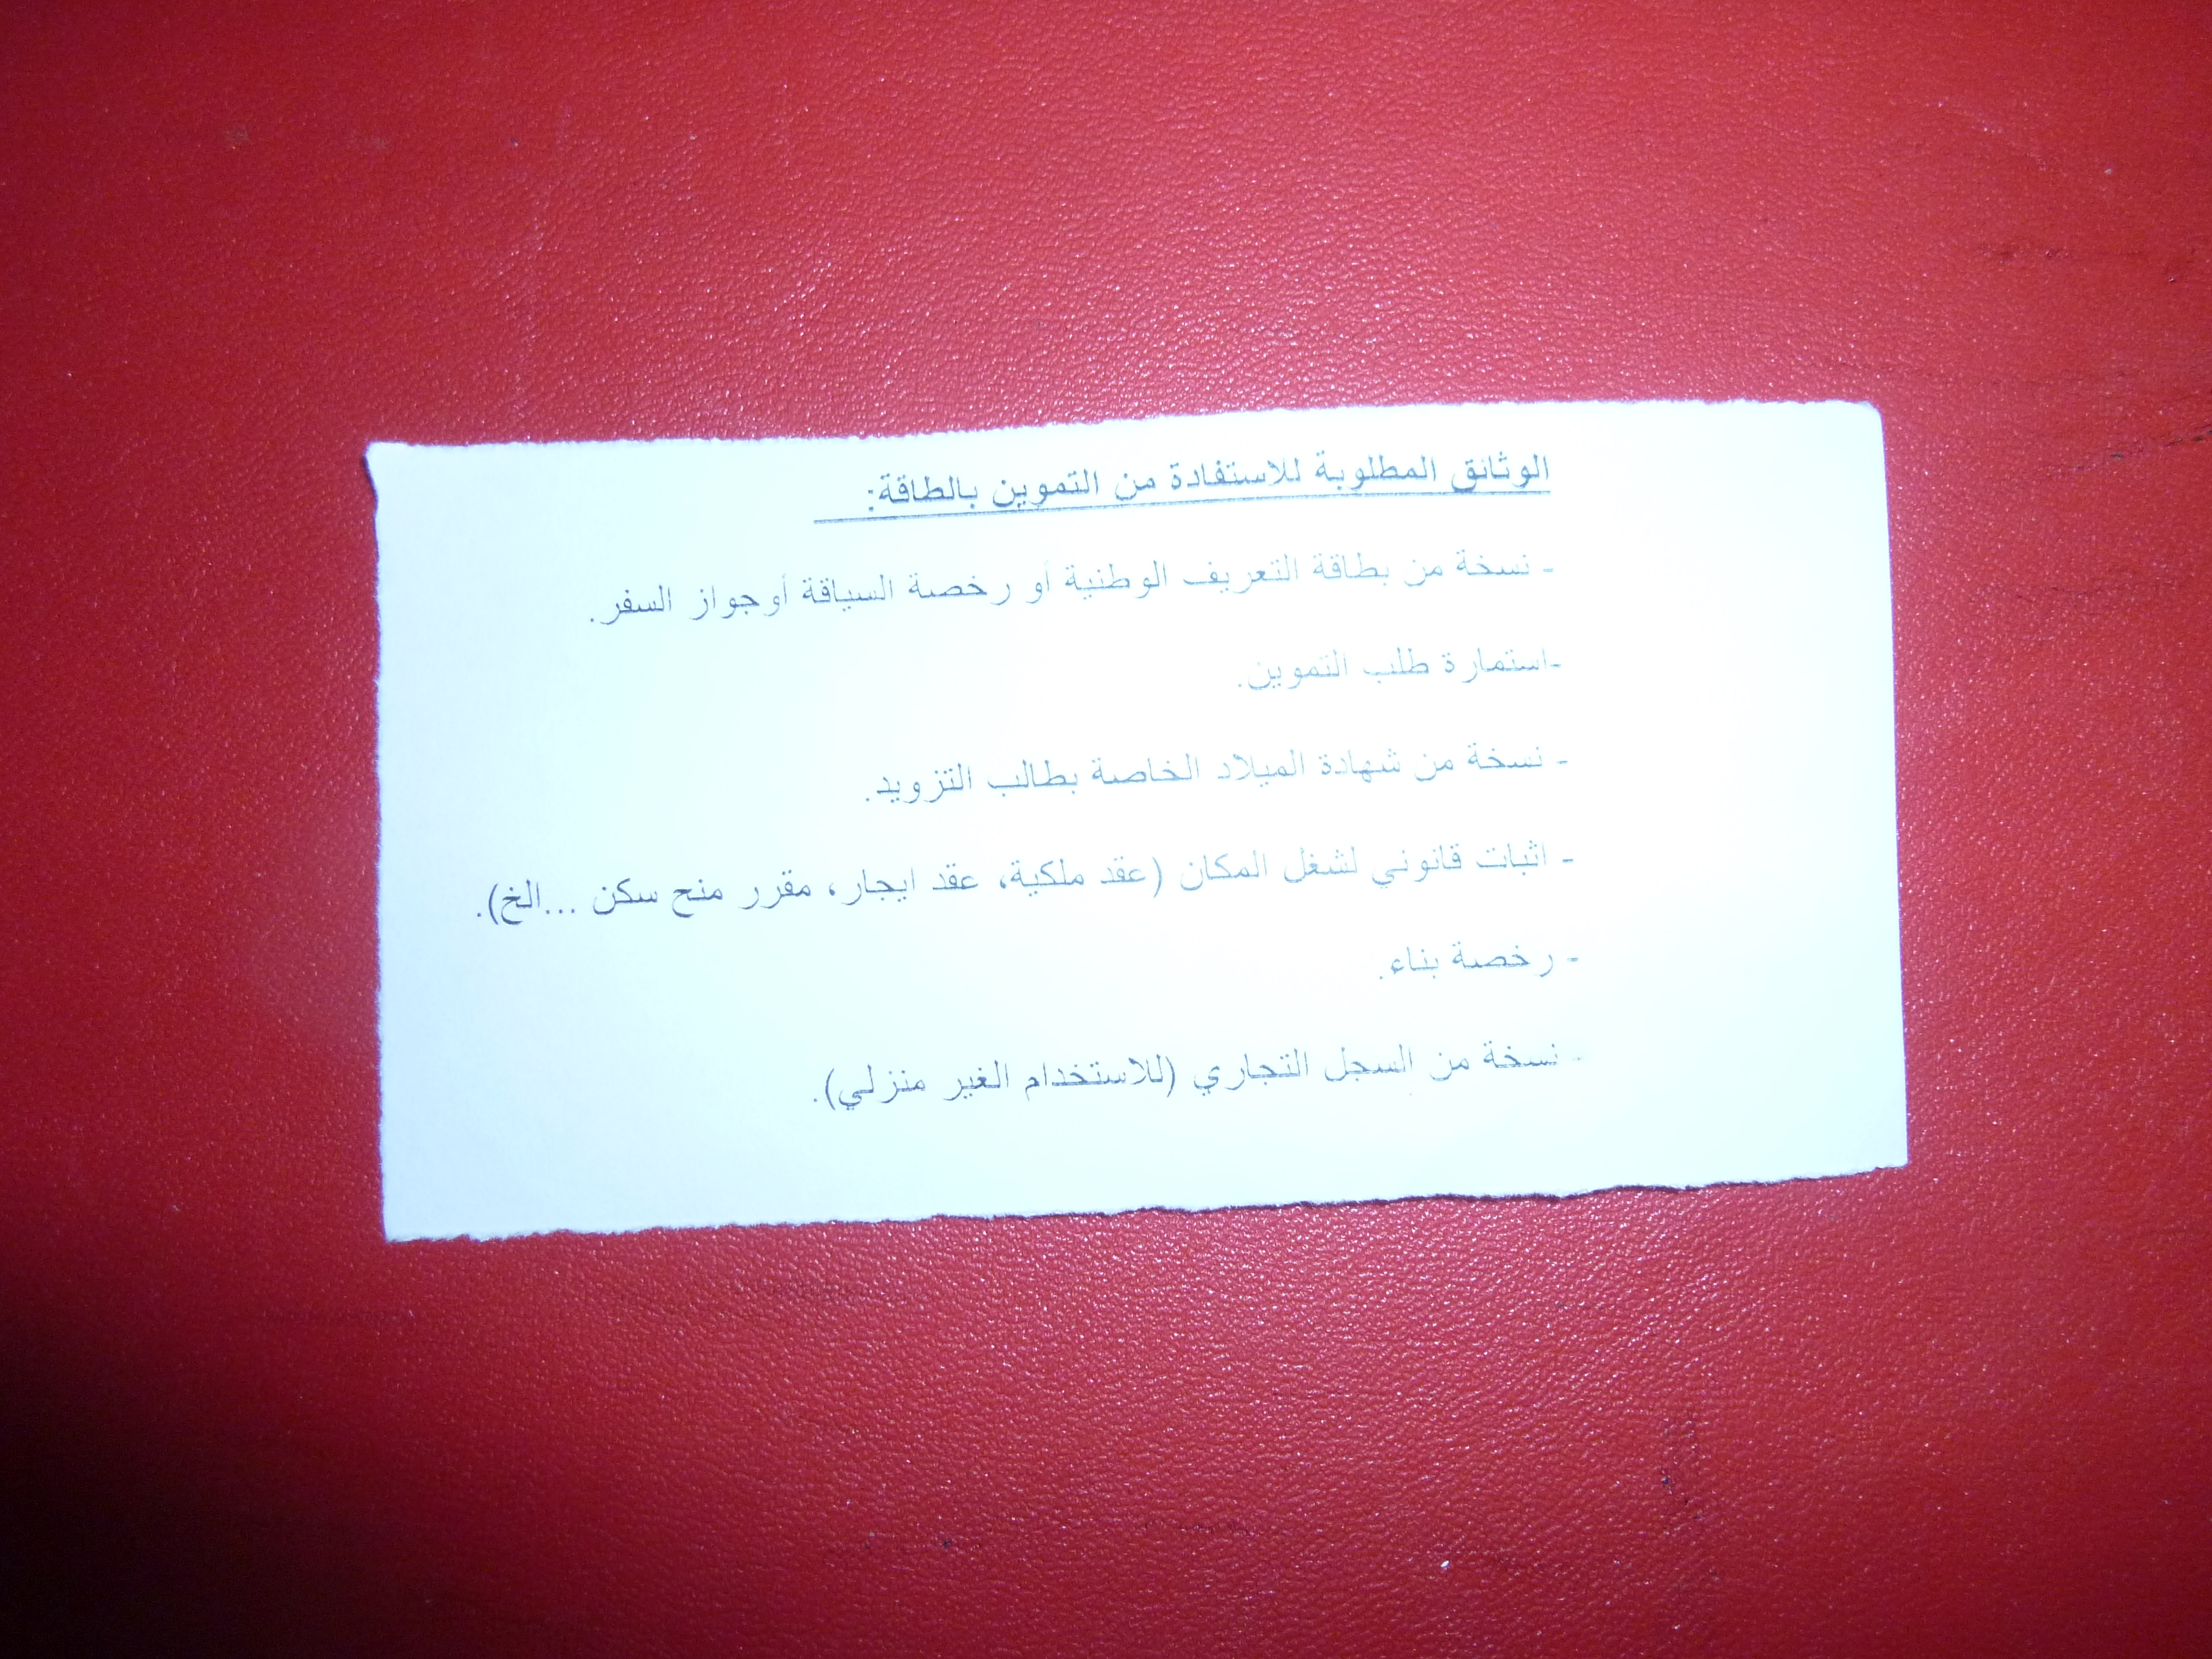 الوثائق المطلوبة للاستفادة من التموين بالطاقة:
- نسخة من بطاقة التعريف الوطنية أو رخصة السياقة أوجواز السفر.
-استمارة طلب التموين.
- نسخة من شهادة الميلاد الخاصة بطالب التزويد.
- اثبات قانوني لشغل المكان (عقد ملكية، عقد ايجار، مقرر منح سكن ...الخ).
- رخصة بناء.
- نسخة من السجل التجاري (للاستخدام الغير منزلي).